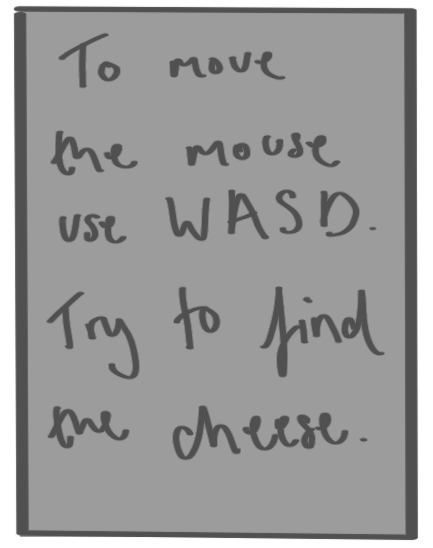 To move
the mouse
use WASD.
Try to find
the cheese.